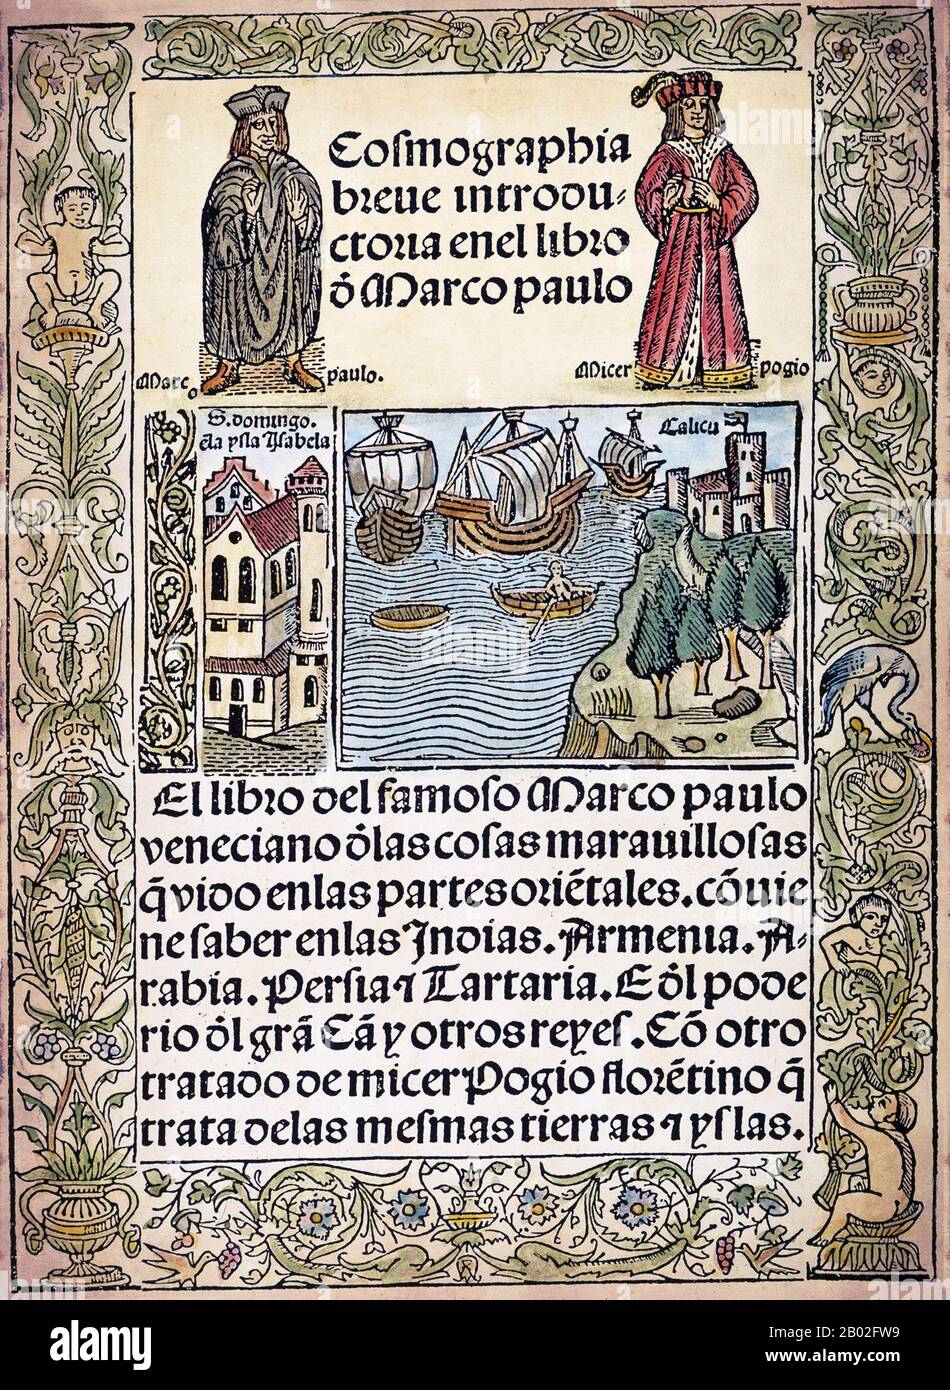 Cosmographia
breue introdu-
ctoria enel libro
đ Marco paulo
Marc
o
paulo.
Micer
pogio
S. domingo.
đla ysla Ysabela
Calicu
El libro del famoso Marco paulo
veneciano đlas cosas marauillosas
q̃ vido enlas partes oriẽtales. cõuie
ne saber enlas Jndias. Armenia. A-
rabia. Persia ⁊ Tartaria. E đl pode
rio đl grã Cã y otros reyes. Cõ otro
tratado de micer Pogio florẽtino q̃
trata delas mesmas tierras ⁊ yslas.
alamy
Image ID: 2B02FW9
www.alamy.com